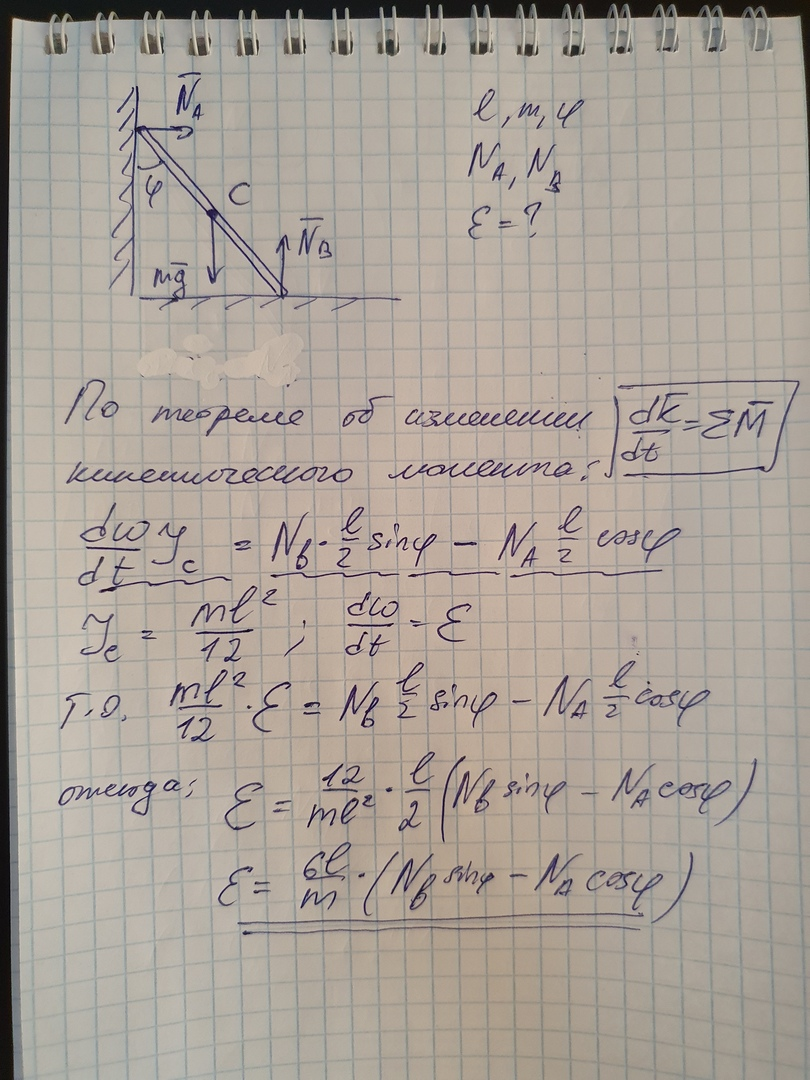 N̅_A
φ
C
N̅_B
mg̅
l, m, φ
N_A, N_B
ε = ?
По теореме об изменении
кинетического момента:
dk̅/dt = ΣM̅
dω/dt J_c = N_B · l/2 sinφ − N_A l/2 cosφ
J_c = ml²/12 ; dω/dt = ε
т.о. ml²/12 · ε = N_B l/2 sinφ − N_A l/2 cosφ
отсюда: ε = 12/ml² · l/2 (N_B sinφ − N_A cosφ)
ε = 6l/m · (N_B sinφ − N_A cosφ)